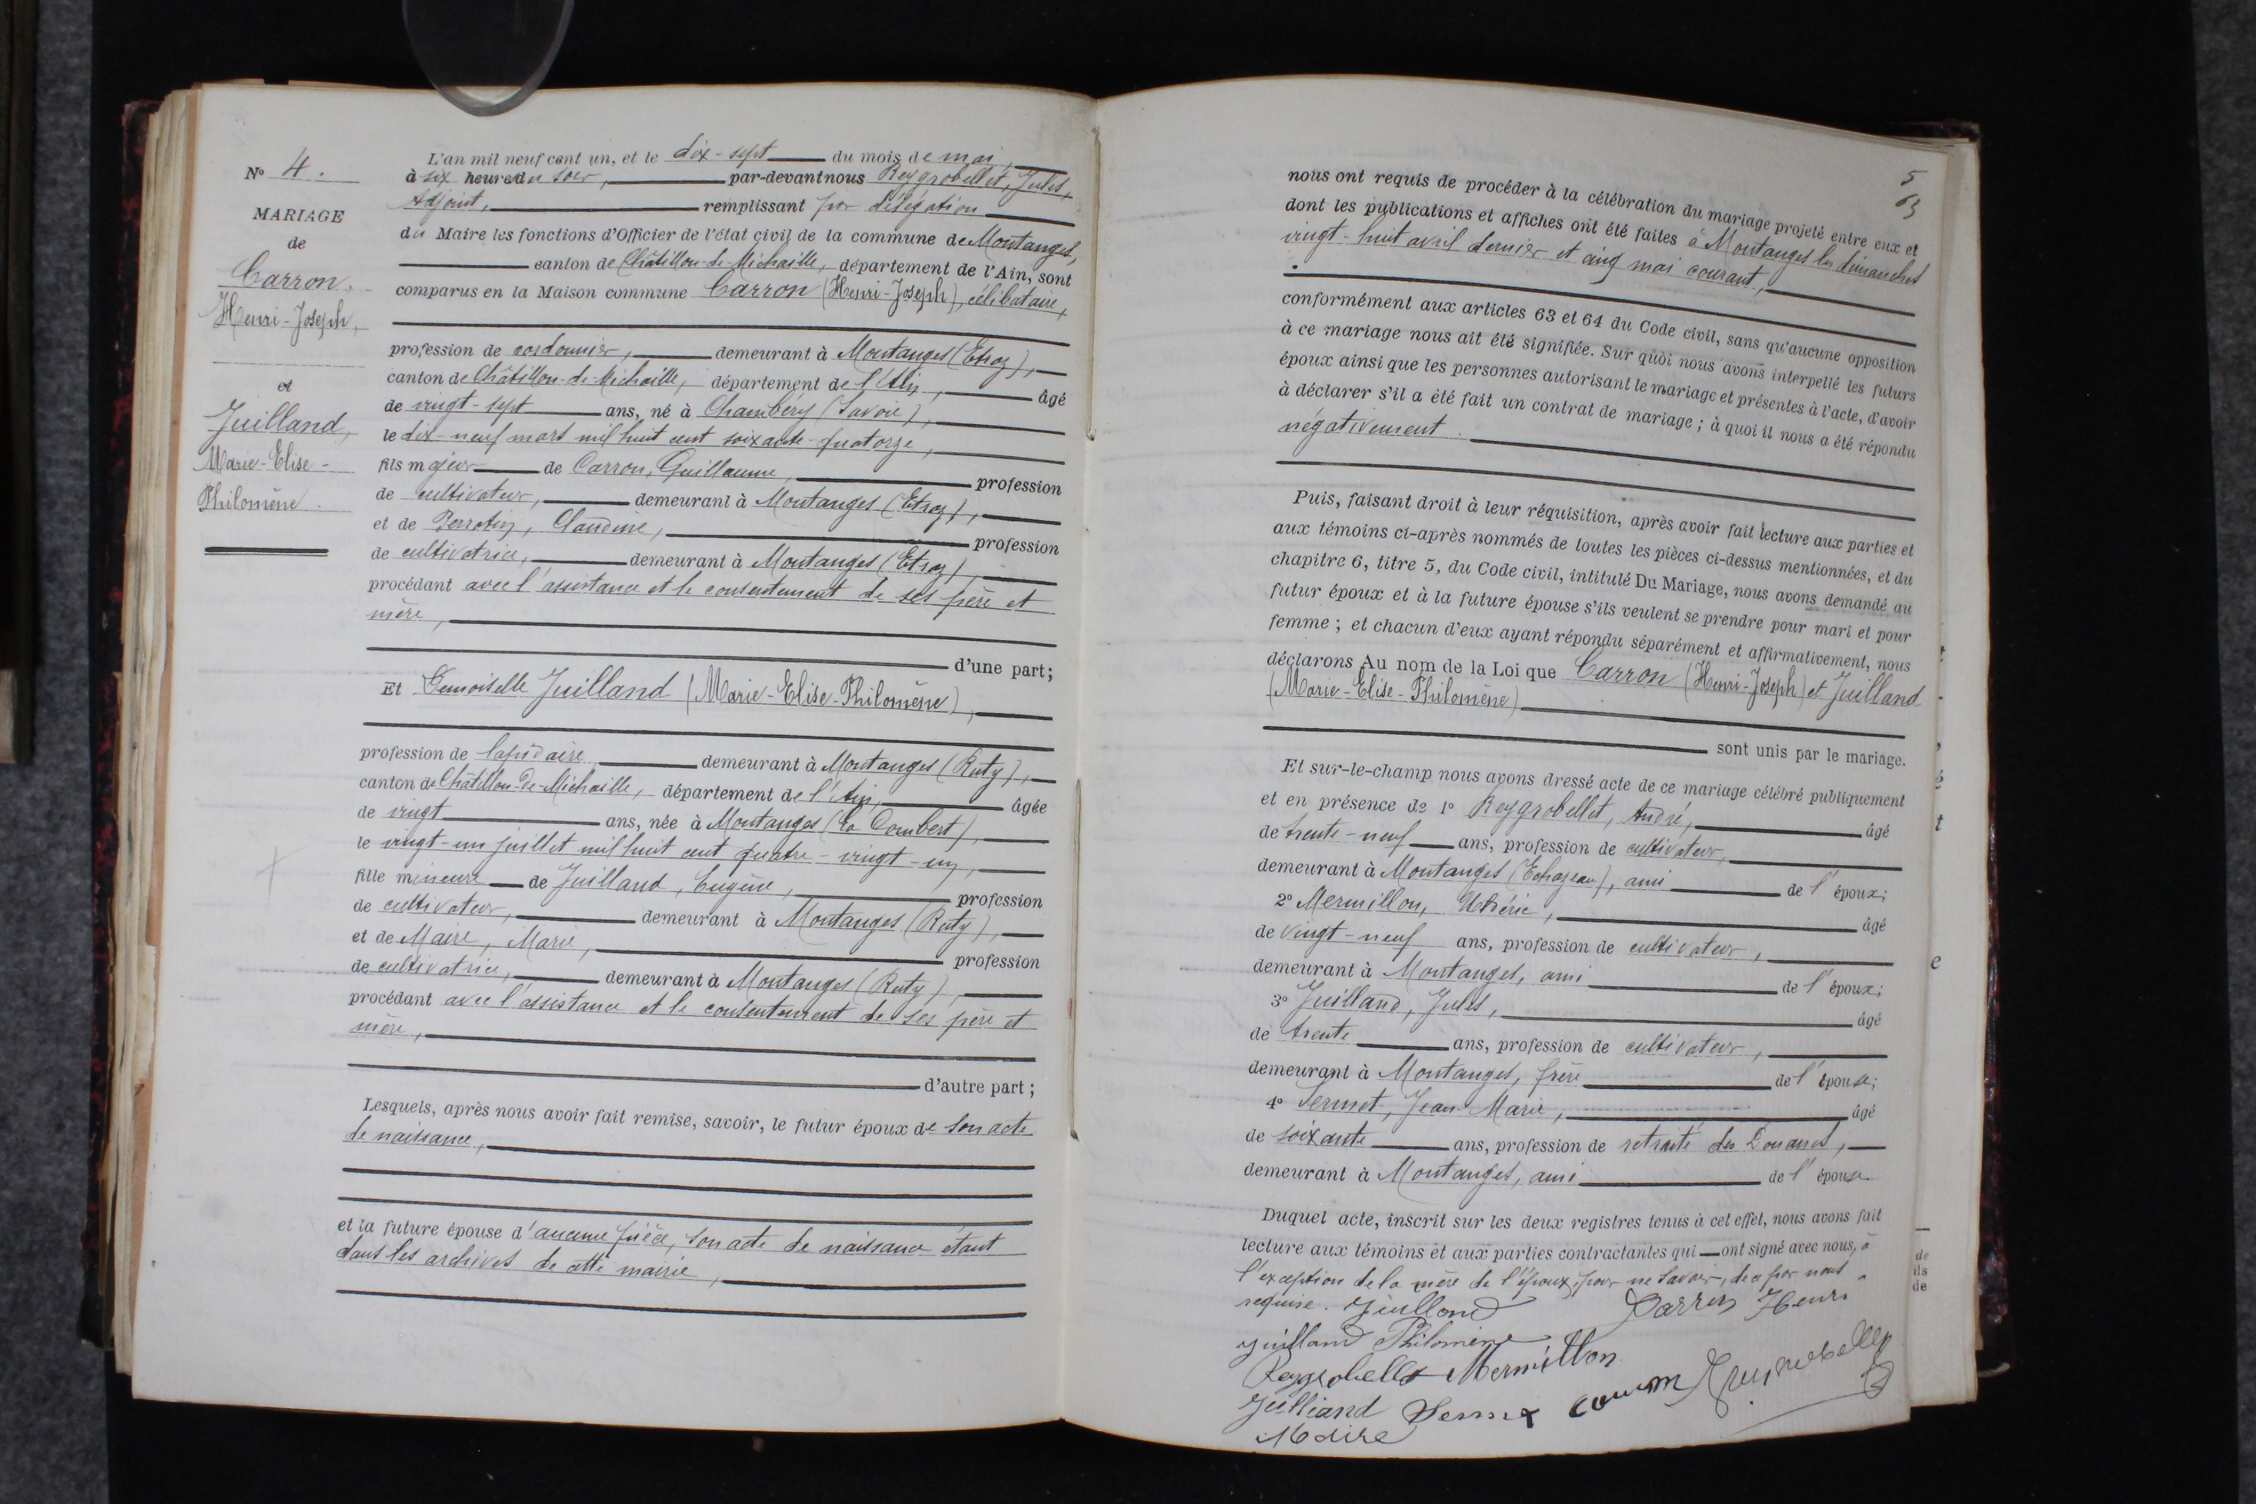 N° 4.
MARIAGE
de
Carron,
Henri-Joseph,
et
Juilland,
Marie-Elise-
Philomène.
L'an mil neuf cent un, et le dix-sept du mois de mai,
à six heures du soir, par-devant nous Reygrobellet, Jules,
Adjoint, remplissant par délégation
du Maire les fonctions d'Officier de l'état civil de la commune de Montanges,
canton de Châtillon-de-Michaille, département de l'Ain, sont
comparus en la Maison commune Carron (Henri-Joseph), célibataire,
profession de cordonnier, demeurant à Montanges (Etraz),
canton de Châtillon-de-Michaille, département de l'Ain, âgé
de vingt-sept ans, né à Chambéry (Savoie),
le dix-neuf mars mil huit cent soixante-quatorze,
fils majeur de Carron, Guillaume, profession
de cultivateur, demeurant à Montanges (Etraz),
et de Perrotin, Claudine, profession
de cultivatrice, demeurant à Montanges (Etraz),
procédant avec l'assistance et le consentement de ses père et
mère,
d'une part;
Et Demoiselle Juilland (Marie-Elise-Philomène),
profession de lapidaire, demeurant à Montanges (Ruty),
canton de Châtillon-de-Michaille, département de l'Ain, âgée
de vingt ans, née à Montanges (La Combert),
le vingt-un juillet mil huit cent quatre-vingt-un,
fille mineure de Juilland, Eugène, profession
de cultivateur, demeurant à Montanges (Ruty),
et de Maire, Marie, profession
de cultivatrice, demeurant à Montanges (Ruty),
procédant avec l'assistance et le consentement de ses père et
mère,
d'autre part;
Lesquels, après nous avoir fait remise, savoir, le futur époux de son acte
de naissance,
et la future épouse d'aucune pièce, son acte de naissance étant
dans les archives de cette mairie,
5
63
nous ont requis de procéder à la célébration du mariage projeté entre eux et
dont les publications et affiches ont été faites à Montanges les dimanches
vingt-huit avril dernier et cinq mai courant,
conformément aux articles 63 et 64 du Code civil, sans qu'aucune opposition
à ce mariage nous ait été signifiée. Sur quoi nous avons interpellé les futurs
époux ainsi que les personnes autorisant le mariage et présentes à l'acte, d'avoir
à déclarer s'il a été fait un contrat de mariage; à quoi il nous a été répondu
négativement.
Puis, faisant droit à leur réquisition, après avoir fait lecture aux parties et
aux témoins ci-après nommés de toutes les pièces ci-dessus mentionnées, et du
chapitre 6, titre 5, du Code civil, intitulé Du Mariage, nous avons demandé au
futur époux et à la future épouse s'ils veulent se prendre pour mari et pour
femme; et chacun d'eux ayant répondu séparément et affirmativement, nous
déclarons Au nom de la Loi que Carron (Henri-Joseph) et Juilland
(Marie-Elise-Philomène)
sont unis par le mariage.
Et sur-le-champ nous avons dressé acte de ce mariage célébré publiquement
et en présence de 1° Reygrobellet, André, âgé
de trente-neuf ans, profession de cultivateur,
demeurant à Montanges (Echazeau), ami de l'époux;
2° Mermillon, âgé
de vingt-neuf ans, profession de cultivateur,
demeurant à Montanges, ami de l'époux;
3° Juilland, Jules, âgé
de trente ans, profession de cultivateur,
demeurant à Montanges, frère de l'épouse;
4° Sermet, Jean-Marie, âgé
de soixante ans, profession de retraité des Douanes,
demeurant à Montanges, ami de l'épouse
Duquel acte, inscrit sur les deux registres tenus à cet effet, nous avons fait
lecture aux témoins et aux parties contractantes qui ont signé avec nous, à
l'exception de la mère de l'époux, pour ne savoir, de ce par nous
requise. Juilland Carron Henri
Juilland Philomène
Reygrobellet Mermillon
Juilland Sermet Carron Reygrobellet
Maire